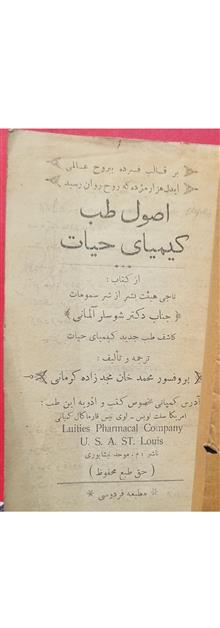 بر قالب فسرده بروح عالمی
ایدل هزار مژده که روح روان رسید
اصول طب
کیمیای حیات
از کتاب :
ناجی هیئت بشر از شر سمومات
( جناب دکتر شوسلر آلمانی )
کاشف طب جدید کیمیای حیات
ترجمه و تألیف :
پروفسور محمد خان مجد زاده کرمانی
آدرس کمپانی مخصوص کتب و ادویه این طب :
امریکا سنت لویس - لوی تیس فارماکال کمپانی
Luities Pharmacal Company
U. S. A. ST. Louis
ناشر : م . موحد نیشابوری
( حق طبع محفوظ )
* مطبعه فردوسی *